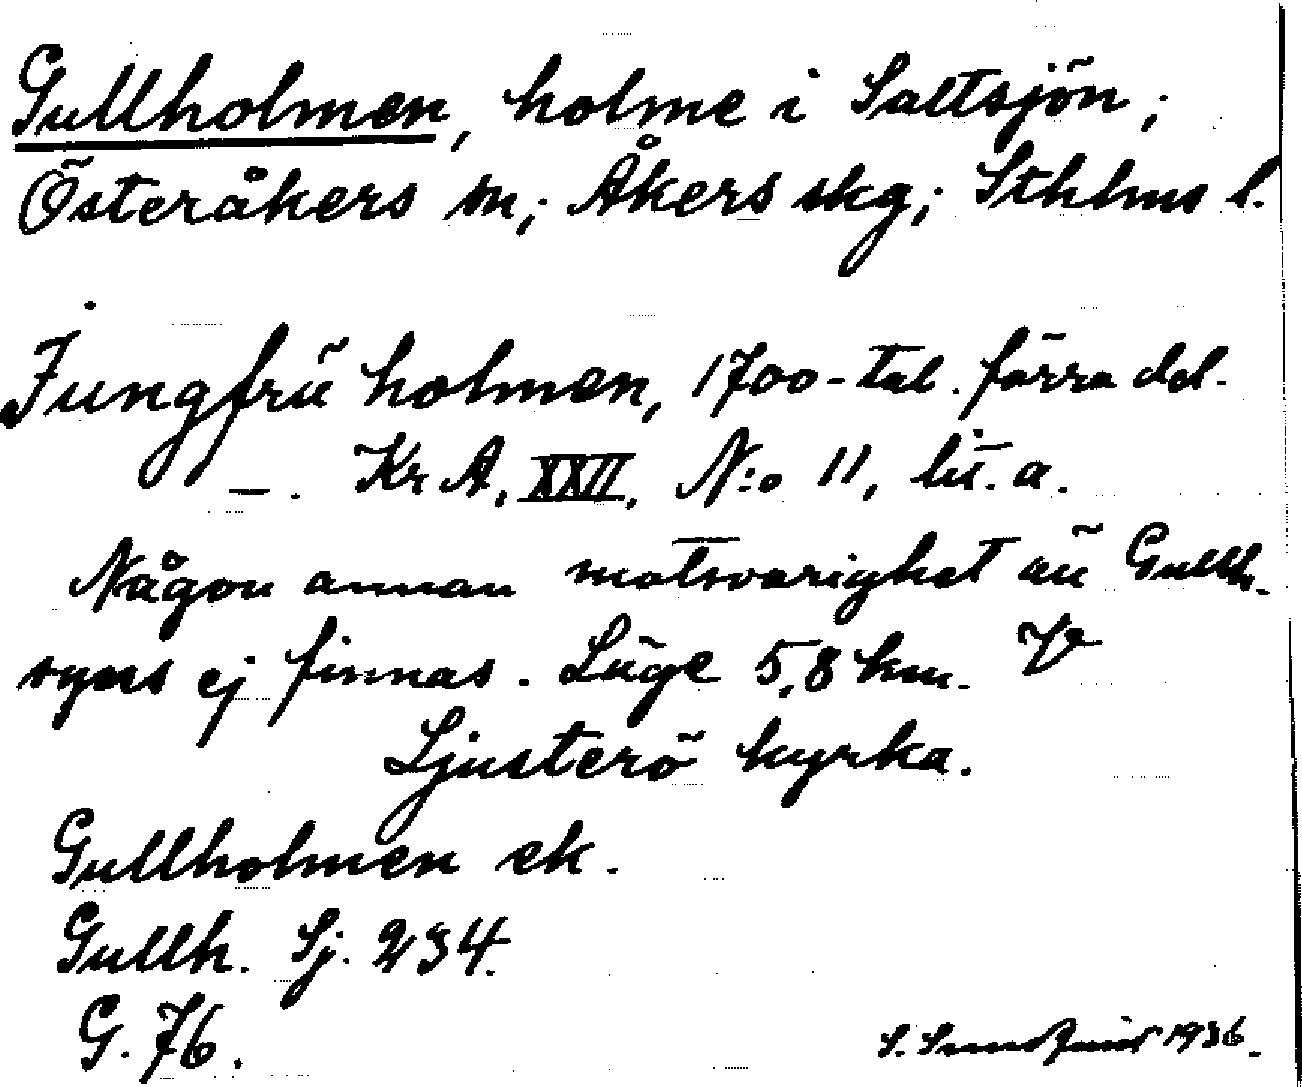 Gullholmen, holme i Saltsjön;
Österåkers sn; Åkers skg; Sthlms l.
Jungfrũ holmen, 1700-tal. förra del.
—. Kr A, XXVI, N:o 11, lit. a.
Någon annan motsvarighet till Gullh.
synes ej finnas. Läge 5,8 km. V
Ljusterö kyrka.
Gullholmen ek.
Gullh. Sj. 234.
G. 76.
1936.